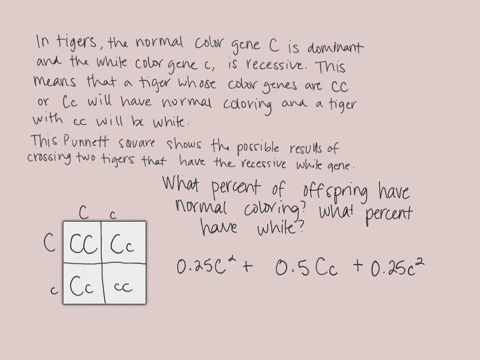 In tigers, the normal color gene C is dominant
and the white color gene c, is recessive. This
means that a tiger whose color genes are CC
or Cc will have normal coloring and a tiger
with cc will be white.
This Punnett square shows the possible results of
crossing two tigers that have the recessive white gene.
What percent of offspring have
normal coloring? What percent
have white?
C c
C CC Cc
c Cc cc
0.25C² + 0.5Cc + 0.25c²